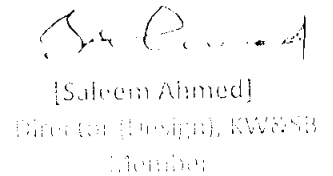 [Saleem Ahmed]
Director (Design), KW&SB
Member